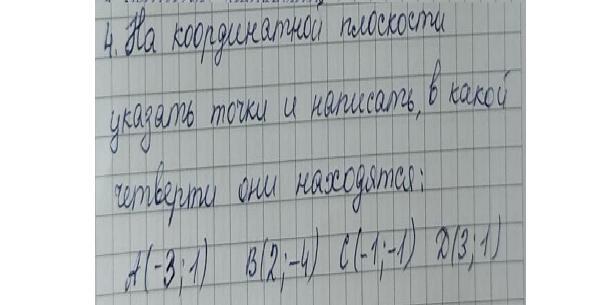 4. На координатной плоскости
указать точки и написать, в какой
четверти они находятся:
A(-3;1) B(2;-4) C(-1;-1) D(3;1)